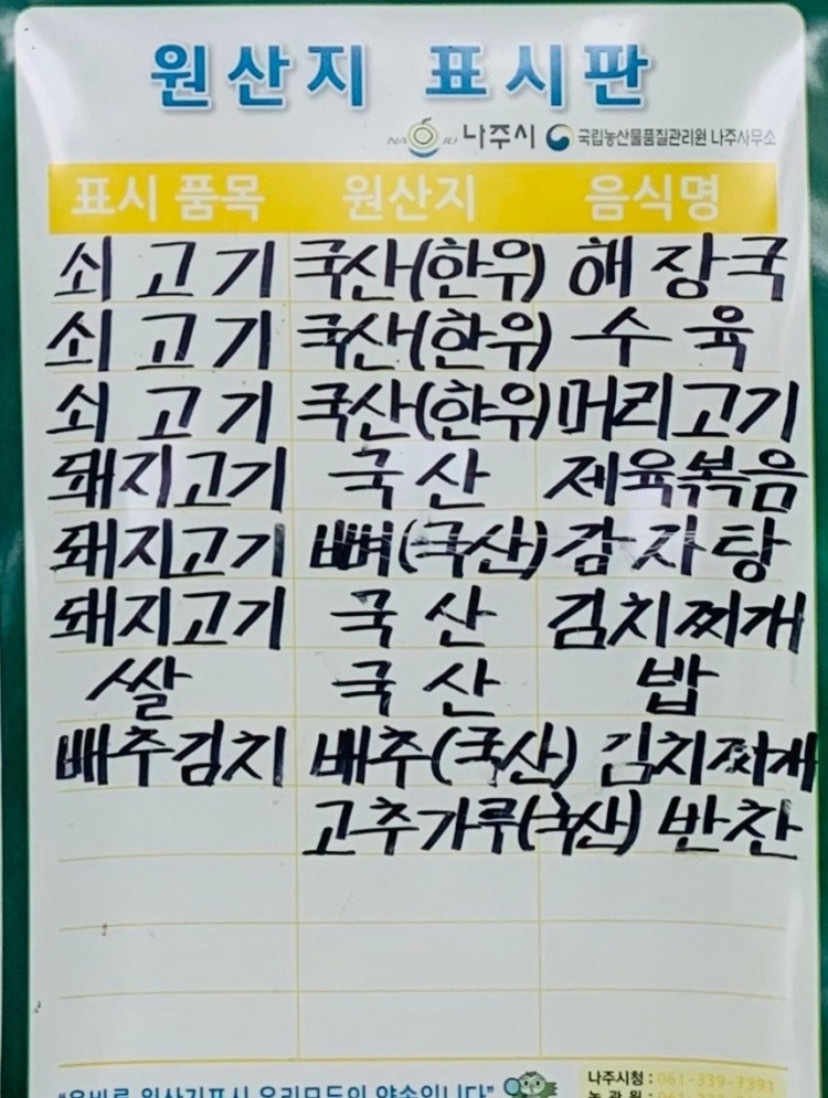 원산지 표시판
NAJU 나주시 국립농산물품질관리원 나주사무소
표시 품목 원산지 음식명
쇠고기 국산(한우) 해장국
쇠고기 국산(한우) 수육
쇠고기 국산(한우) 머리고기
돼지고기 국산 제육볶음
돼지고기 뼈(국산) 감자탕
돼지고기 국산 김치찌개
쌀 국산 밥
배추김치 배추(국산) 김치찌개
고추가루(국산) 반찬
"올바른 원산지표시 우리모두의 약속입니다"
나주시청 : 061-339-7391
농관원 : 061-